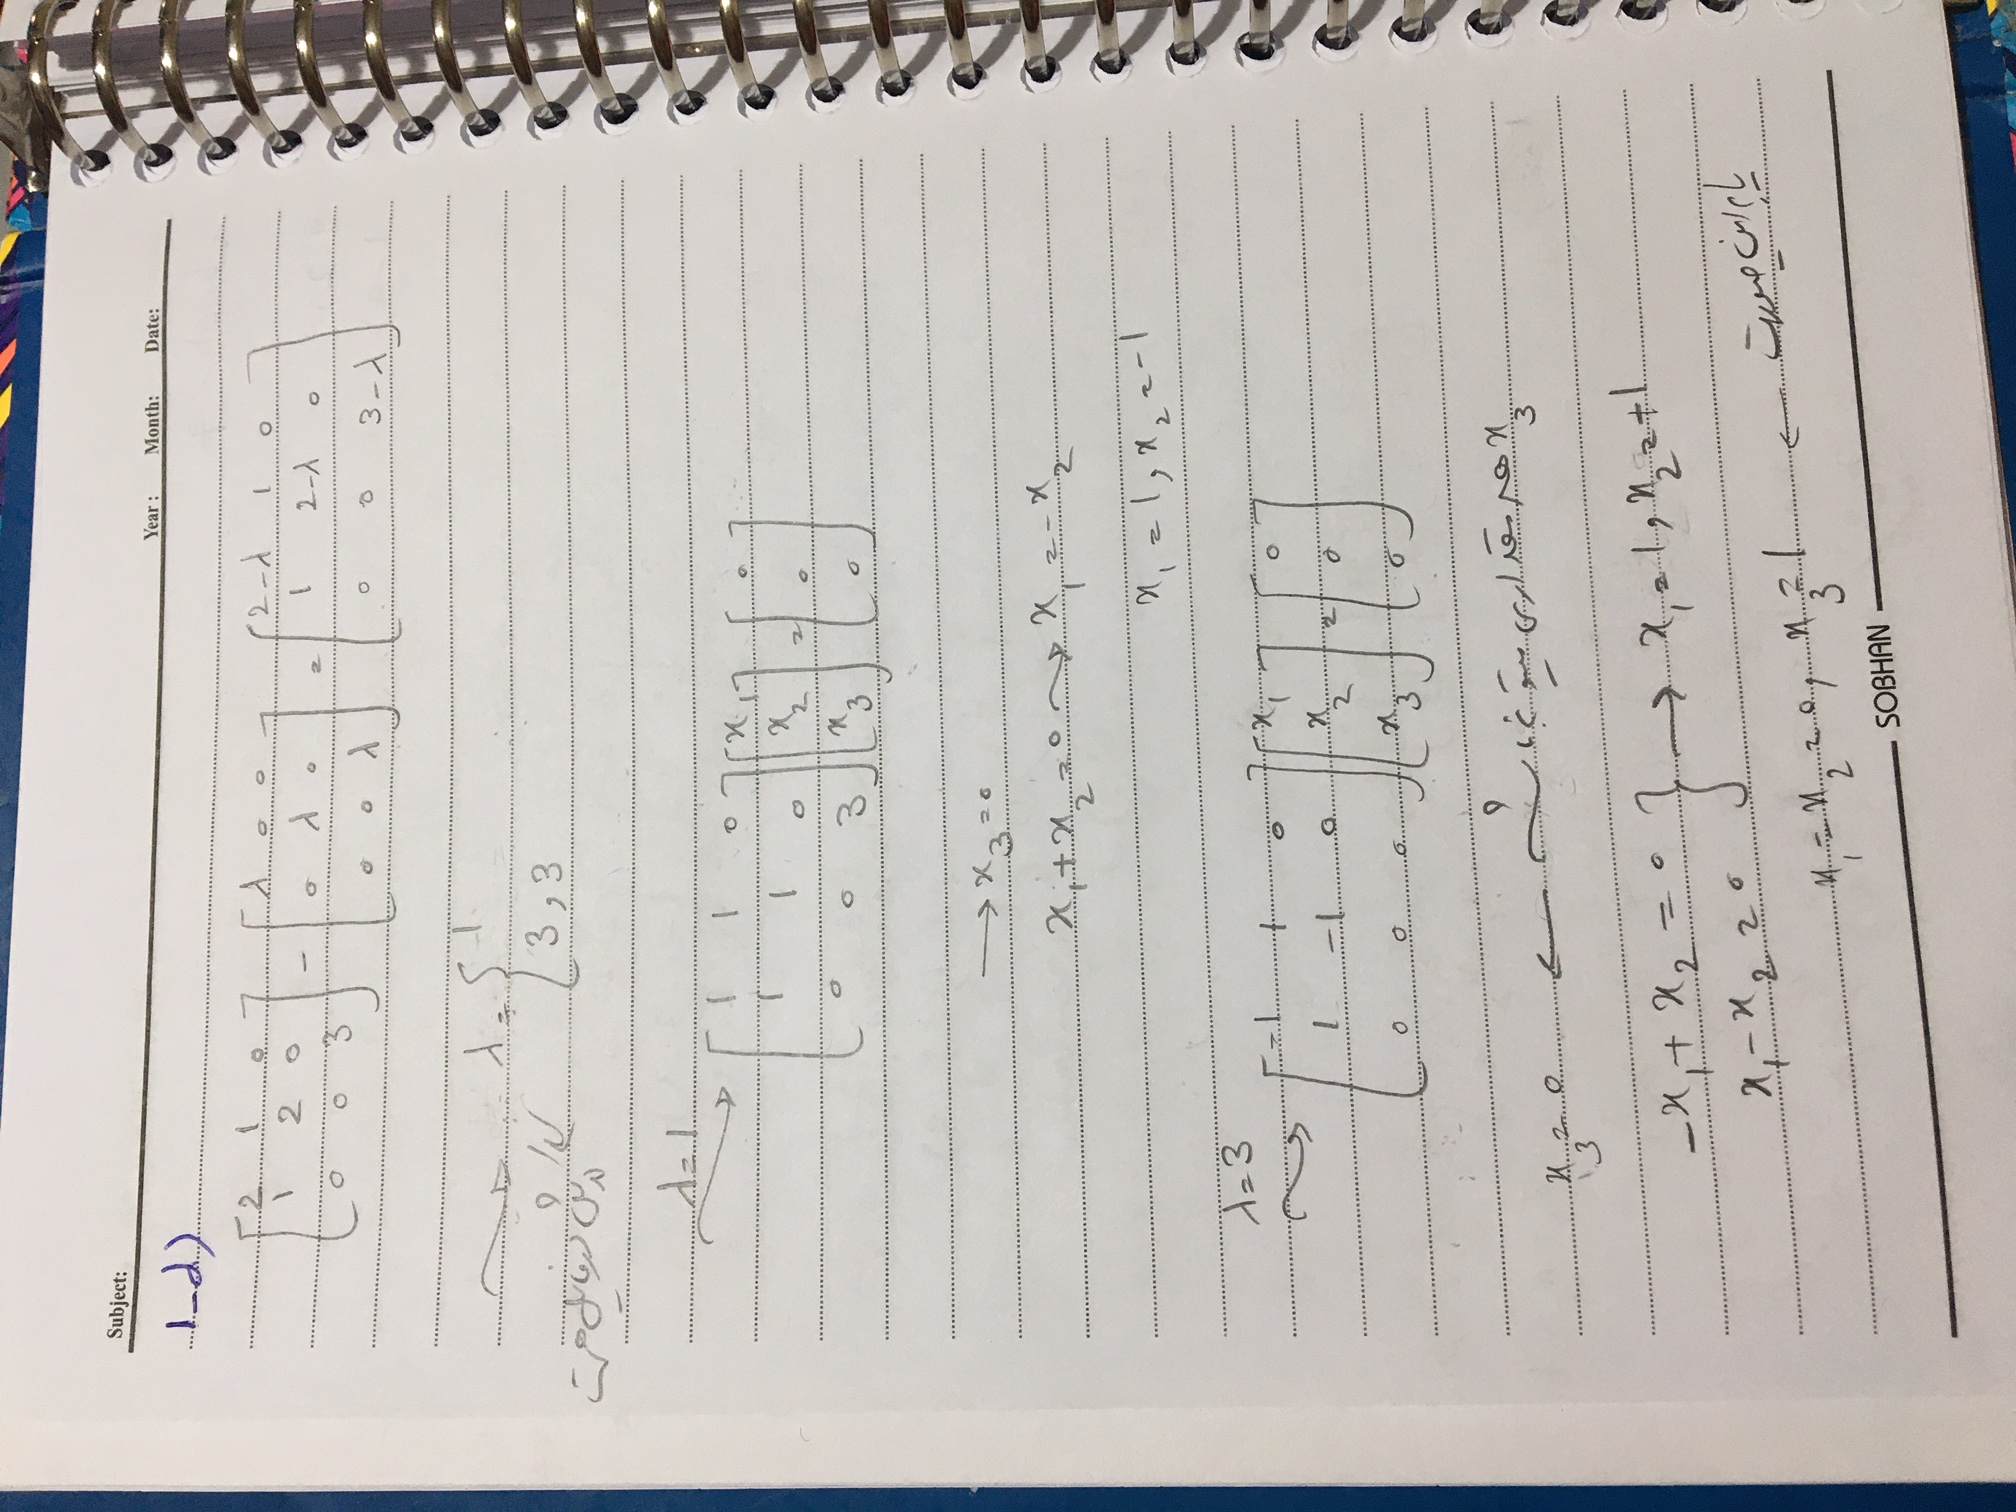 Subject:
Year : Month: Date:
1-d)
[2 1 0; 1 2 0; 0 0 3] - [λ 0 0; 0 λ 0; 0 0 λ] = [2-λ 1 0; 1 2-λ 0; 0 0 3-λ]
λ = { 1
3, 3
کد
در فایل هست
λ=1
[1 1 0; 1 1 0; 0 0 3] [x1; x2; x3] = [0; 0; 0]
→ x3 = 0
x1 + x2 = 0 → x1 = -x2
x1 = 1, x2 = -1
λ=3
[-1 1 0; 1 -1 0; 0 0 0] [x1; x2; x3] = [0; 0; 0]
x3 هر مقداری میتونه باشه → x3 = 0
-x1 + x2 = 0
x1 - x2 = 0 } → x1 = 1, x2 = +1
یا به این صورت ← x1 = x2 = 0, x3 = 1
SOBHAN